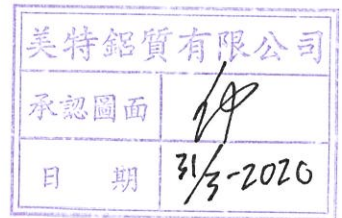 美特鋁質有限公司
承認圖面
日 期 31/3-2020